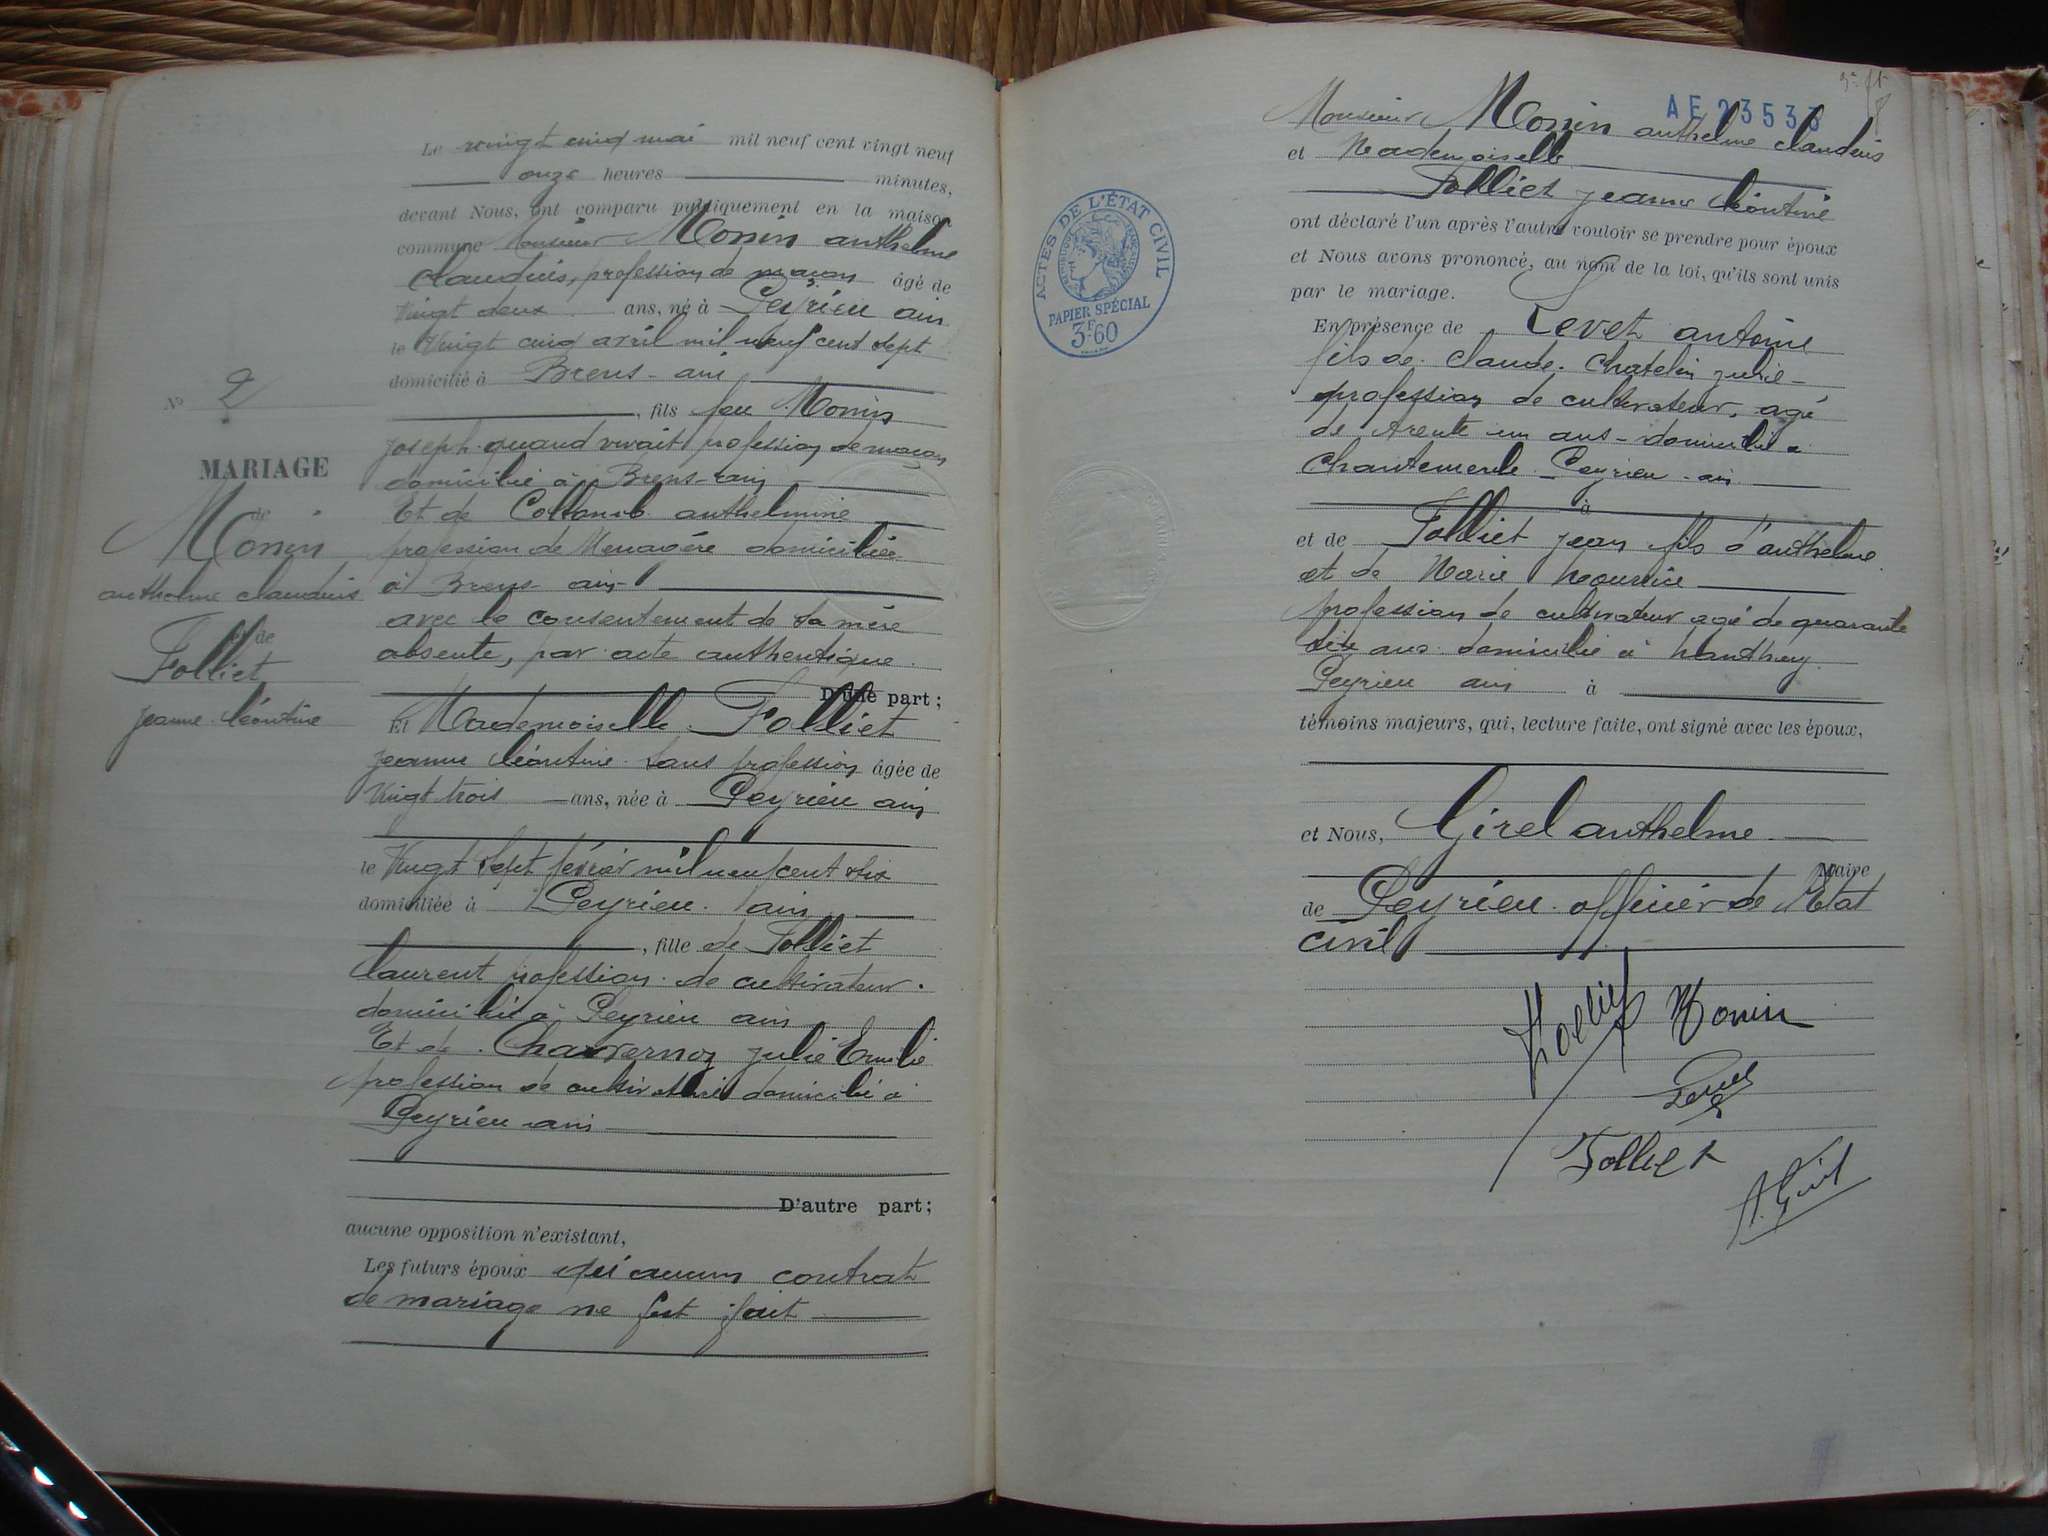 Le vingt cinq mai mil neuf cent vingt neuf
onze heures minutes,
devant Nous, ont comparu publiquement en la maison
commune Monsieur Monin anthelme
claudius, profession de maçon âgé de
vingt deux ans, né à Peyrieu ain
le vingt cinq avril mil neuf cent sept
domicilié à Brens - ain
, fils feu Monin
joseph quand vivait profession de maçon
domicilié à Brens - ain
Et de Collomb anthelmine
profession de Menagére domiciliée
à Brens ain
avec le consentement de sa mère
absente, par acte authentique.
D'une part;
Et Mademoiselle Folliet
jeanne léontine sans profession âgée de
vingt trois ans, née à Peyrieu ain
le vingt sept février mil neuf cent six
domiciliée à Peyrieu ain
, fille de Folliet
laurent profession de cultivateur.
domicilié à Peyrieu ain
Et de julie Emilie
profession de domicilié à
Peyrieu ain
D'autre part;
aucune opposition n'existant,
Les futurs époux qu'aucun contrat
de mariage ne fut fait
No 2
MARIAGE
de
Monin
anthelme claudius
et de
Folliet
jeanne léontine
AE 23533
Monsieur Monin anthelme claudius
et Mademoiselle
Folliet jeanne léontine
ont déclaré l'un après l'autre vouloir se prendre pour époux
et Nous avons prononcé, au nom de la loi, qu'ils sont unis
par le mariage.
En présence de Levet antoine
fils de claude. Chatelin julie -
profession de cultivateur, agé
de trente un ans - domicilié à
Chantemerle - Peyrieu - ain
à
et de Folliet jean fils d'anthelme
et de Marie
profession de cultivateur agé de quarante
six ans domicilié à
Peyrieu ain à
témoins majeurs, qui, lecture faite, ont signé avec les époux,
et Nous, Girel anthelme
Maire
de Peyrieu officier de l'Etat
civil
Folliet Monin
Levet
Folliet
A. Girel
ACTES DE L'ÉTAT CIVIL
RÉPUBLIQUE FRANÇAISE
PAPIER SPÉCIAL
3F60